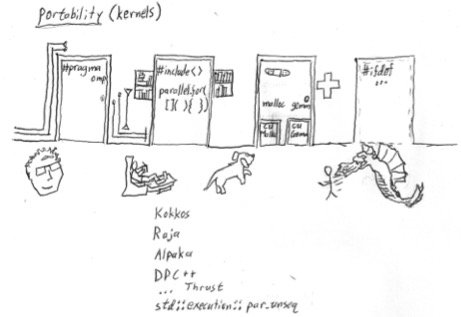 Portability (kernels)
#pragma
omp
#include<>
parallel_for(
[]( ){ })
malloc gemm
cu
Malloc
cu
Gemm
#ifdef
...
Kokkos
Raja
Alpaka
DPC++
... Thrust
std::execution::par_unseq